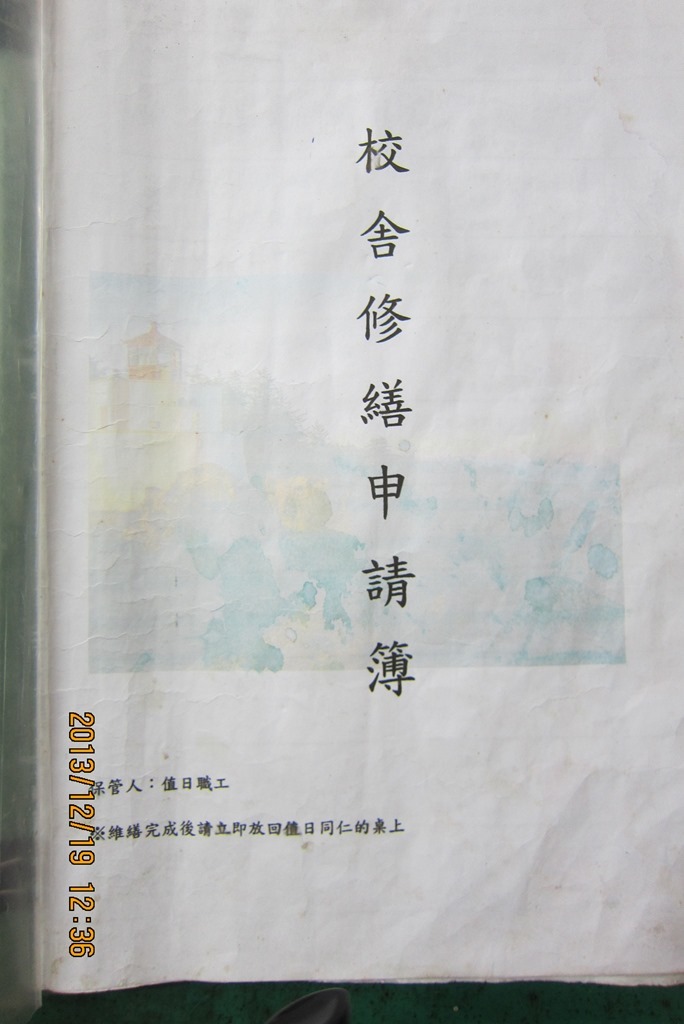 校舍修繕申請簿
保管人：值日職工
※維繕完成後請立即放回值日同仁的桌上
2013/12/19 12:36